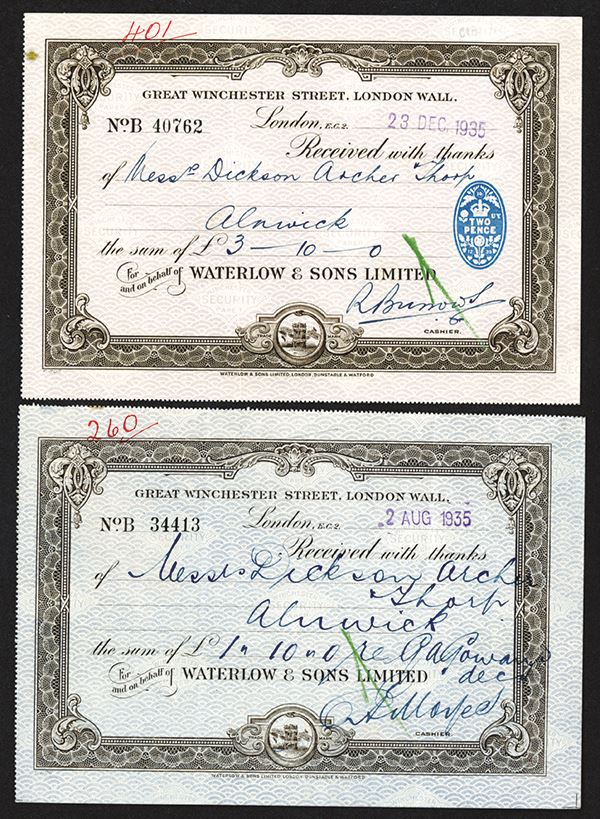 401
GREAT WINCHESTER STREET, LONDON WALL.
No. B 40762 London, E.C.2. 23 DEC. 1935
Received with thanks
of Messrs Dickson Archer & Thorp
Alnwick
TWO PENCE
the sum of £ 3 — 10 — 0
For and on behalf of WATERLOW & SONS LIMITED
CASHIER.
WATERLOW & SONS LIMITED, LONDON, DUNSTABLE & WATFORD
260
GREAT WINCHESTER STREET, LONDON WALL.
No. B 34413 London, E.C.2. 2 AUG 1935
Received with thanks
of Messrs Dickson Archer
& Thorp
Alnwick
the sum of £ 1 " 10 " 0 re
For and on behalf of WATERLOW & SONS LIMITED decd
CASHIER.
WATERLOW & SONS LIMITED, LONDON, DUNSTABLE & WATFORD